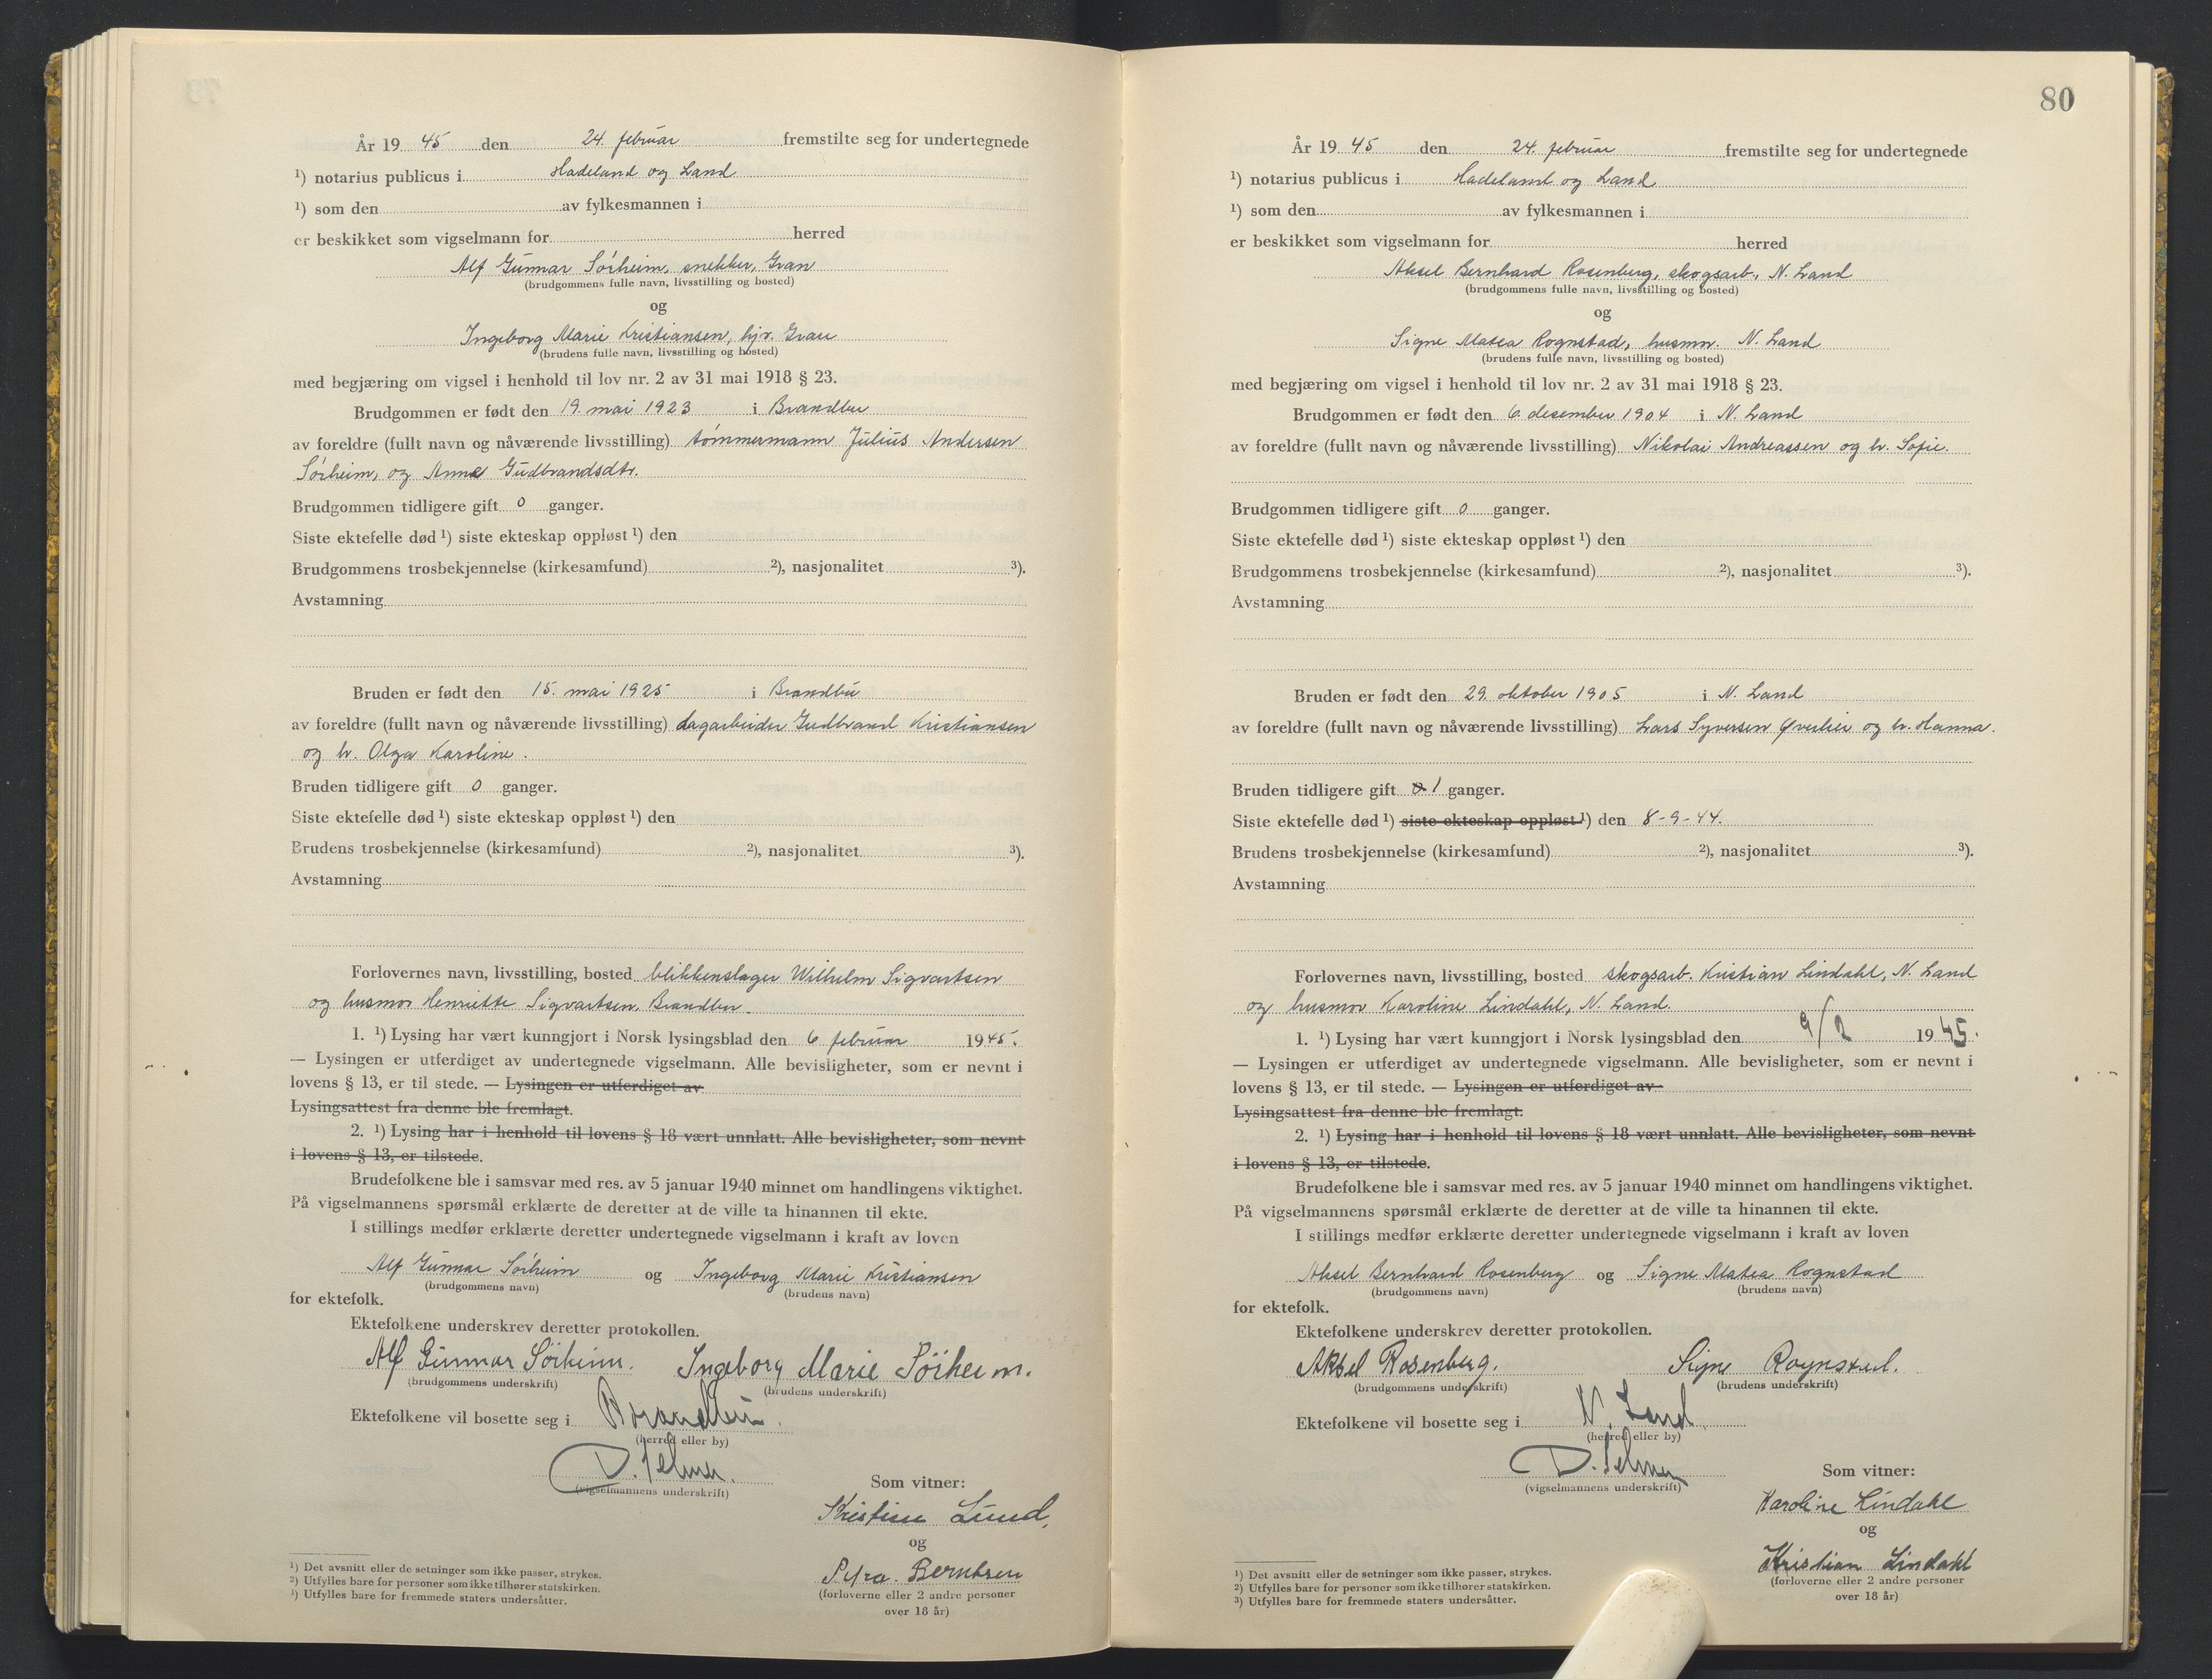 År 19 45 den 24. februar fremstilte seg for undertegnede
¹) notarius publicus i Hadeland og Land
¹) som den av fylkesmannen i
er beskikket som vigselmann for herred
Alf Gunnar Sörheim, snekker, Gran
(brudgommens fulle navn, livsstilling og bosted)
og
Ingeborg Marie Kristiansen, hjv. Gran
(brudens fulle navn, livsstilling og bosted)
med begjæring om vigsel i henhold til lov nr. 2 av 31 mai 1918 § 23.
Brudgommen er født den 19. mai 1923 i Brandbu
av foreldre (fullt navn og nåværende livsstilling) tömmermann Julius Andersen
Sörheim, og Anne Gudbrandsdtr.
Brudgommen tidligere gift 0 ganger.
Siste ektefelle død ¹) siste ekteskap oppløst ¹) den
Brudgommens trosbekjennelse (kirkesamfund) ²), nasjonalitet ³).
Avstamning
Bruden er født den 15. mai 1925 i Brandbu
av foreldre (fullt navn og nåværende livsstilling) dagarbeider Gudbrand Kristiansen
og h. Olga Karoline.
Bruden tidligere gift 0 ganger.
Siste ektefelle død ¹) siste ekteskap oppløst ¹) den
Brudens trosbekjennelse (kirkesamfund) ²), nasjonalitet ³).
Avstamning
Forlovernes navn, livsstilling, bosted blikkenslager Wilhelm Sigvartsen
og husmor Henriette Sigvartsen, Brandbu.
1. ¹) Lysing har vært kunngjort i Norsk lysingsblad den 6 februar 1945.
— Lysingen er utferdiget av undertegnede vigselmann. Alle bevisligheter, som er nevnt i
lovens § 13, er til stede. — Lysingen er utferdiget av
Lysingsattest fra denne ble fremlagt.
2. ¹) Lysing har i henhold til lovens § 18 vært unnlatt. Alle bevisligheter, som nevnt
i lovens § 13, er tilstede.
Brudefolkene ble i samsvar med res. av 5 januar 1940 minnet om handlingens viktighet.
På vigselmannens spørsmål erklærte de deretter at de ville ta hinannen til ekte.
I stillings medfør erklærte deretter undertegnede vigselmann i kraft av loven
Alf Gunnar Sörheim og Ingeborg Marie Kristiansen
(brudgommens navn) (brudens navn)
for ektefolk.
Ektefolkene underskrev deretter protokollen.
Alf Gunnar Sörheim. Ingeborg Marie Sörheim.
(brudgommens underskrift) (brudens underskrift)
Ektefolkene vil bosette seg i Brandbu.
(herred eller by)
D. Selmer.
(vigselmannens underskrift)
Som vitner:
Kristine Lund,
og
Petra Berntsen
(forloverne eller 2 andre personer
over 18 år)
¹) Det avsnitt eller de setninger som ikke passer, strykes.
²) Utfylles bare for personer som ikke tilhører statskirken.
³) Utfylles bare for fremmede staters undersåtter.
80
År 19 45 den 24. februar fremstilte seg for undertegnede
¹) notarius publicus i Hadeland og Land
¹) som den av fylkesmannen i
er beskikket som vigselmann for herred
Aksel Bernhard Rosenberg, skogsarb., N. Land
(brudgommens fulle navn, livsstilling og bosted)
og
Signe Matea Rognstad, husmor. N. Land
(brudens fulle navn, livsstilling og bosted)
med begjæring om vigsel i henhold til lov nr. 2 av 31 mai 1918 § 23.
Brudgommen er født den 6. desember 1904 i N. Land
av foreldre (fullt navn og nåværende livsstilling) Nikolai Andreassen og h. Sofie.
Brudgommen tidligere gift 0 ganger.
Siste ektefelle død ¹) siste ekteskap oppløst ¹) den
Brudgommens trosbekjennelse (kirkesamfund) ²), nasjonalitet ³).
Avstamning
Bruden er født den 29. oktober 1905 i N. Land
av foreldre (fullt navn og nåværende livsstilling) Lars Syversen Øverlier og h. Hanna.
Bruden tidligere gift 0 1 ganger.
Siste ektefelle død ¹) siste ekteskap oppløst ¹) den 8-9-44.
Brudens trosbekjennelse (kirkesamfund) ²), nasjonalitet ³).
Avstamning
Forlovernes navn, livsstilling, bosted skogsarb. Kristian Lindahl, N. Land
og husmor Karoline Lindahl, N. Land.
1. ¹) Lysing har vært kunngjort i Norsk lysingsblad den 9/2 1945.
— Lysingen er utferdiget av undertegnede vigselmann. Alle bevisligheter, som er nevnt i
lovens § 13, er til stede. — Lysingen er utferdiget av
Lysingsattest fra denne ble fremlagt.
2. ¹) Lysing har i henhold til lovens § 18 vært unnlatt. Alle bevisligheter, som nevnt
i lovens § 13, er tilstede.
Brudefolkene ble i samsvar med res. av 5 januar 1940 minnet om handlingens viktighet.
På vigselmannens spørsmål erklærte de deretter at de ville ta hinannen til ekte.
I stillings medfør erklærte deretter undertegnede vigselmann i kraft av loven
Aksel Bernhard Rosenberg og Signe Matea Rognstad
(brudgommens navn) (brudens navn)
for ektefolk.
Ektefolkene underskrev deretter protokollen.
Aksel Rosenberg. Signe Rognstad.
(brudgommens underskrift) (brudens underskrift)
Ektefolkene vil bosette seg i N. Land.
(herred eller by)
D. Selmer
(vigselmannens underskrift)
Som vitner:
Karoline Lindahl
og
Kristian Lindahl
(forloverne eller 2 andre personer
over 18 år)
¹) Det avsnitt eller de setninger som ikke passer, strykes.
²) Utfylles bare for personer som ikke tilhører statskirken.
³) Utfylles bare for fremmede staters undersåtter.